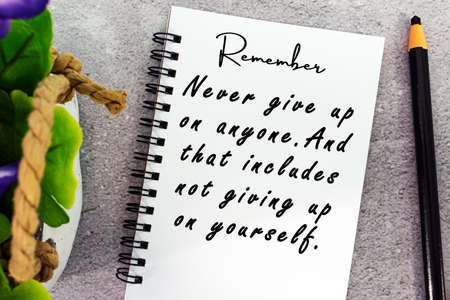 Remember
Never give up
on anyone. And
that includes
not giving up
on yourself.